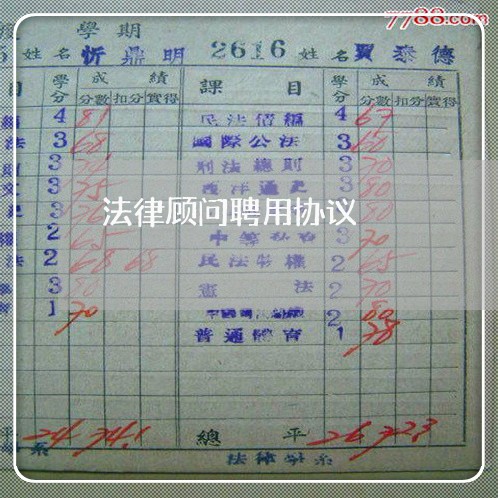 7788.com
學期
姓名 忻鼎明 2616 姓名 賈泰德
目 學分 成績 課目 學分 成績
分數 扣分 實得 分數 扣分 實得
4 81 民法債編 4 67
法 3 68 國際公法 3 60
3 刑法總則 3 70
3 75 西洋通史 3 80
3 3 80
法律顾问聘用协议
2 65 3 70
法 2 68 68 民法物權 2 65
3 80 憲法 2 70
1 70 2 80
普通體育 1 78
平 24 74.1 總平 26 72.3
系 法律學系